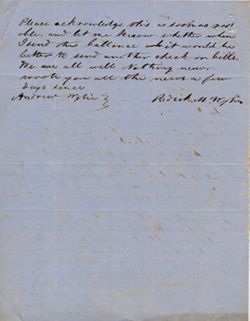 Please acknowledge this as soon as poss
ible, and let me know whether when
I send the ballance whit would be
better to send another check or bills.
We are all well Nothing new
wrote you all the news a few
days since
Andrew Wylie Redick M. Wylie